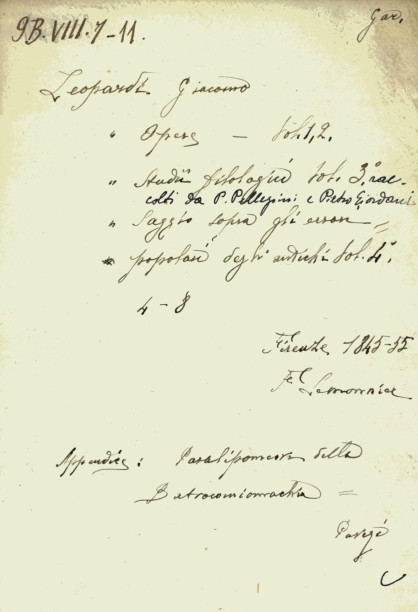 9B.VIII.7-11.
Gar.
Leopardi Giacomo
" Opere — Vol. 1, 2.
" Studii filologici Vol. 3.° rac-
colti da P. Pellegrini e Pietro Giordani
" Saggio sopra gli errori =
popolari degli antichi Vol. 4°
4-8
Firenze 1845-55
F. Lemonnier
Appendice: Paralipomeni della
Batracomiomachia =
Parigi